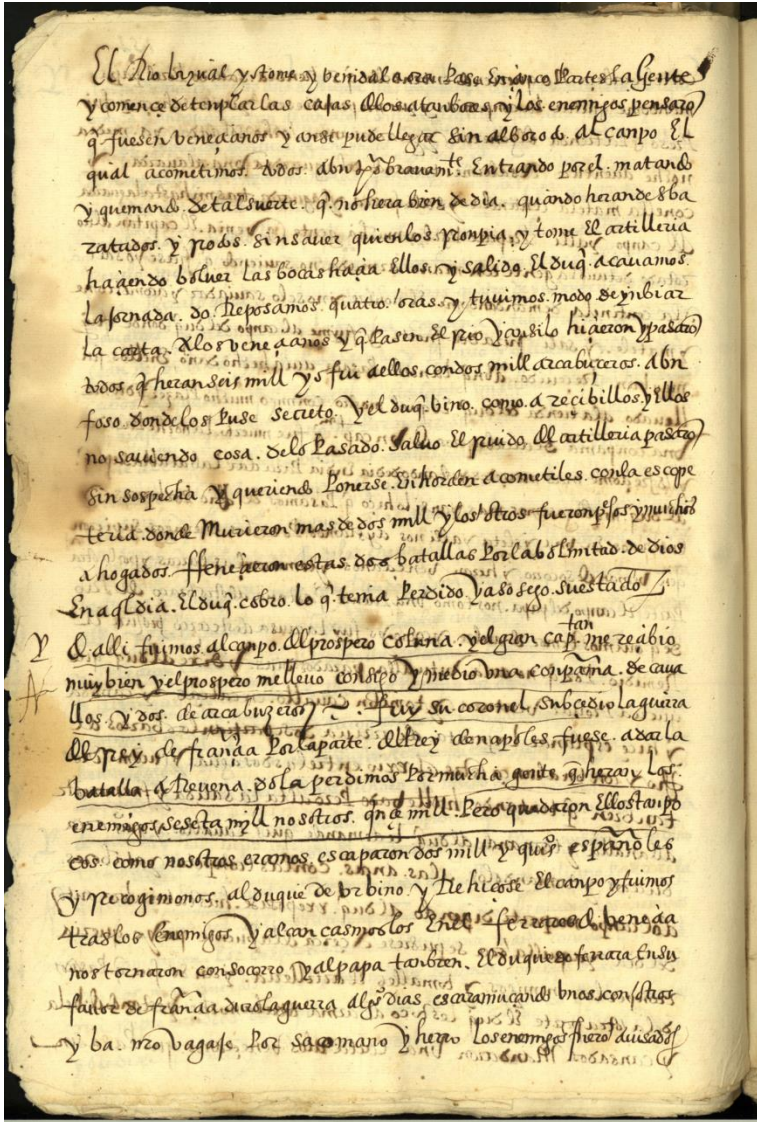 El Rio la qual ystoma y benida la ora Pase En çinco Partes La Gente
y comence de tenplar las cajas de los atanbores y los enemigos pensarõ
q̃ fuesen veneçianos y ansi pude llegar sin alboroto al canpo El
qual acometimos todos abn tpõ bravamte Entrando por el matando
y quemando de tal suerte q̃ no hera bien de dia quando heran desba
ratados y Rotos sin saver quien los Ronpia y tome El artilleria
haçiendo bolver las bocas haçia Ellos y salido El duq̃ acavamos
la jornada do Reposamos quatro oras y tuvimos modo de ynbiar
la carta a los veneçianos y q̃ Pasen El Rio y ansi lo hiçieron y pasarõ
todos q̃ heran seis mill y fui a ellos con dos mill arcabuçeros a bn
foso donde los Puse secreto y el duq̃ vino como a recibillos y Ellos
no saviendo cosa de lo Pasado salvo El Ruido del artilleria pasarõ
sin sospecha y queriendo Ponerse En horden acometiles con la escope
teria donde Murieron mas de dos mill y los otros fueron psos y muchos
ahogados ffeneçieron estas dos batallas Por la bolũntad de dios
En aql dia El duq̃ cobro lo q̃ tenia Perdido y asosego su estado
Y de alli fuimos al canpo del prospero coluna y el gran cap.tan me reçibio
muy bien y el prospero me llevo consigo y me dio vna conpañia de cava
llos y dos de arcabuzeros fuy su coronel subcedio la guerra
del Rey de françia Por la parte del Rey de napoles fuese a dar la
batalla a Revena do la perdimos Por mucha gente q̃ heran Los
enemigos sesẽta mill nosotros qnçe mill Pero quedaron Ellos tan po
cos como nosotros eramos escaparon dos mill y quis españoles
y Recogimonos al duque de vrbino y Rehiçose El canpo y fuimos
tras los Enemigos y alcançasmoslos En el ferrares de veneçia
nos tornaron con socorro y al papa tanbien El duque de ferrara En su
favor de frãnçia duro la guerra algs dias escaramuçando vnos con otros
y ba nro vagaje Por sacomano y hepro Los enemigos fuerõ avisados